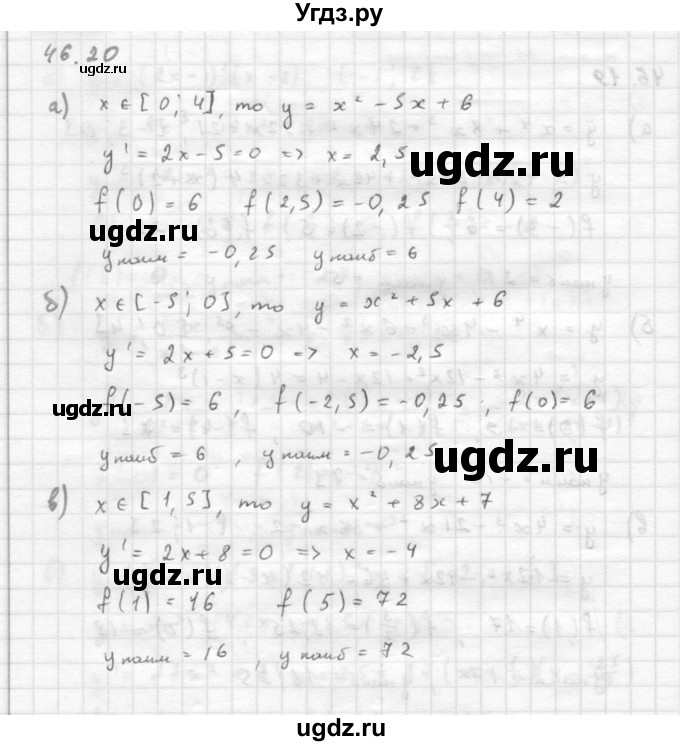 Угдз.ру
46.20
ugdz.ru
а) x ∈ [0; 4], то y = x² - 5x + 6
y' = 2x - 5 = 0 => x = 2,5
ugdz.ru
f(0) = 6 f(2,5) = -0,25 f(4) = 2
ugdz.ru
yнаим = -0,25 yнаиб = 6
б) x ∈ [-5; 0], то y = x² + 5x + 6
y' = 2x + 5 = 0 => x = -2,5
f(-5) = 6, f(-2,5) = -0,25, f(0) = 6
ugdz.ru
yнаиб = 6, yнаим = -0,25
ugdz.ru
в) x ∈ [1, 5], то y = x² + 8x + 7
y' = 2x + 8 = 0 => x = -4
ugdz.ru
f(1) = 16 f(5) = 72
yнаим = 16, yнаиб = 72
ugdz.ru
ugdz.ru